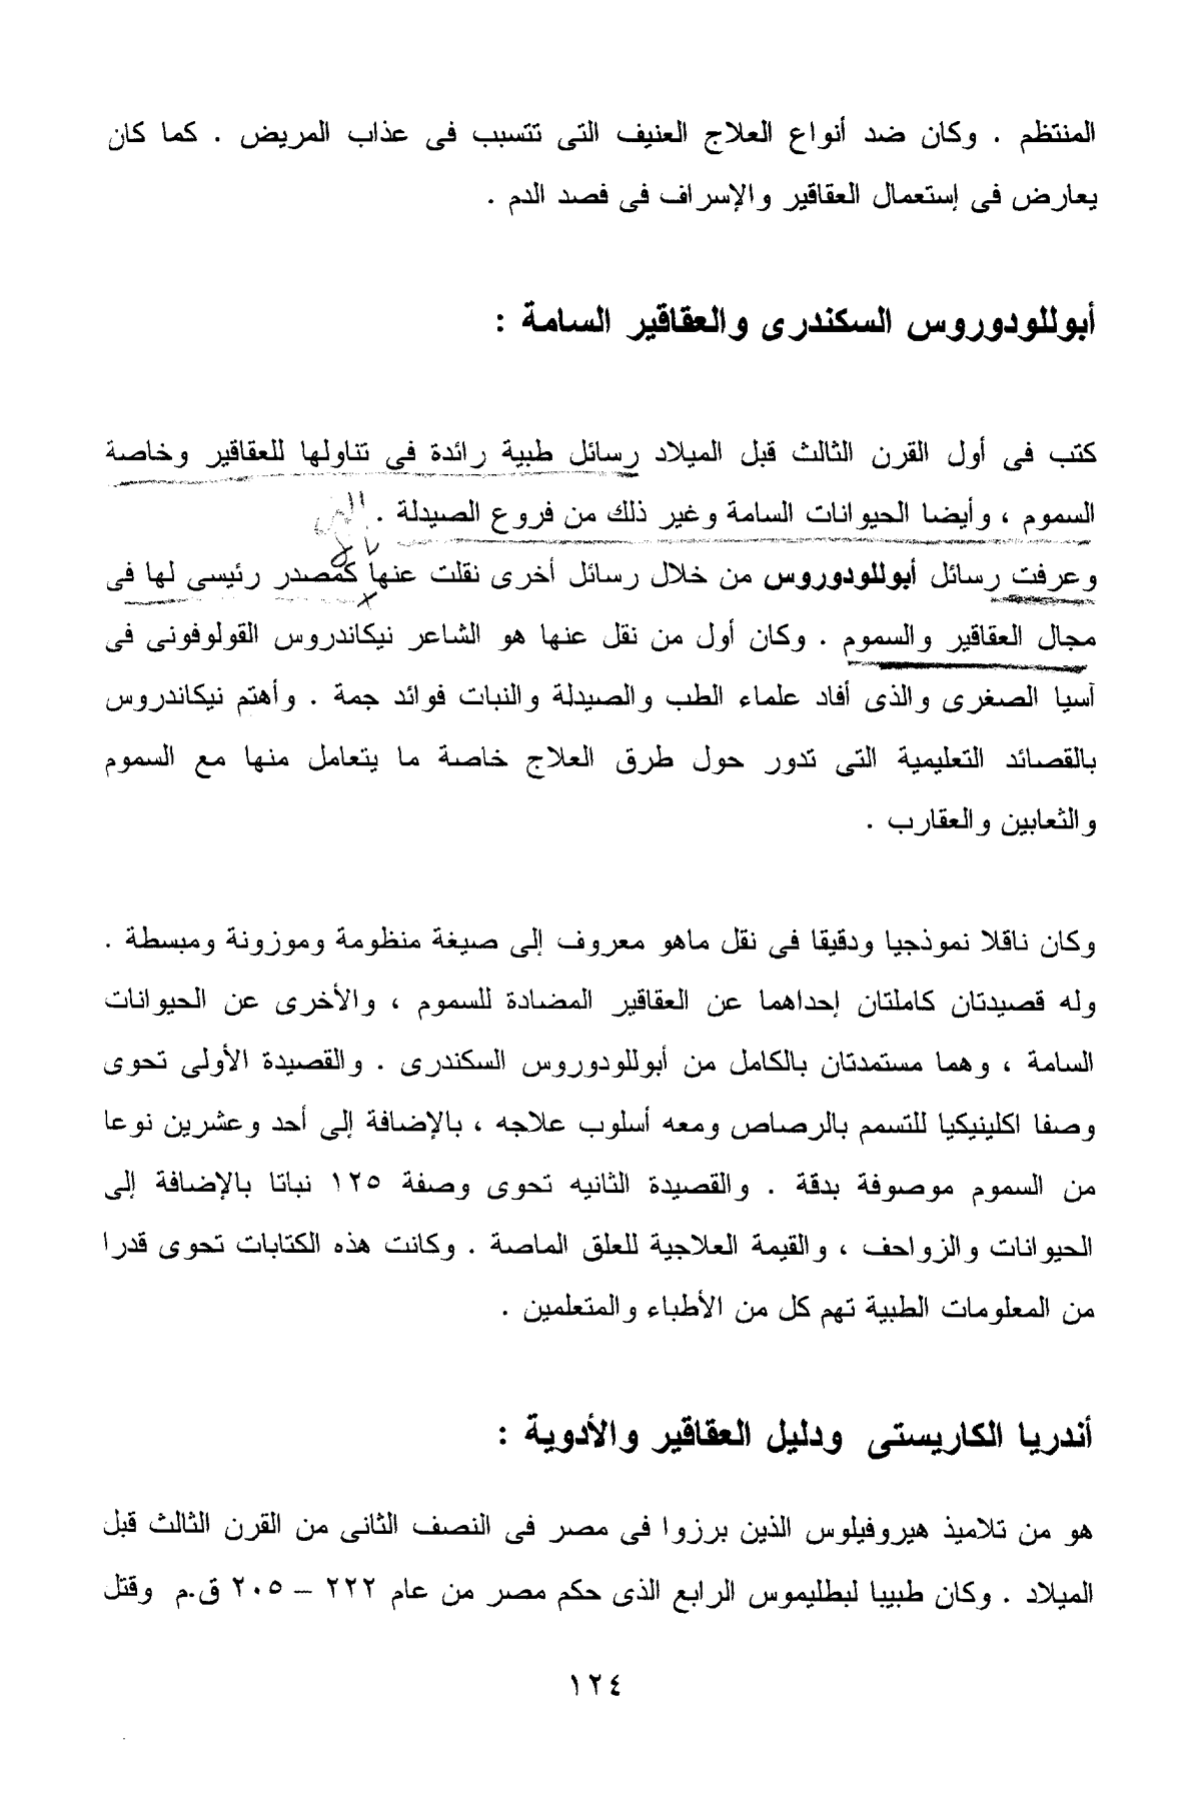 المنتظم . وكان ضد أنواع العلاج العنيف التى تتسبب فى عذاب المريض . كما كان
يعارض فى إستعمال العقاقير والإسراف فى فصد الدم .
أبوللودوروس السكندرى والعقاقير السامة :
كتب فى أول القرن الثالث قبل الميلاد رسائل طبية رائدة فى تناولها للعقاقير وخاصة
السموم ، وأيضا الحيوانات السامة وغير ذلك من فروع الصيدلة .
وعرفت رسائل أبوللودوروس من خلال رسائل أخرى نقلت عنها كمصدر رئيسى لها فى
مجال العقاقير والسموم . وكان أول من نقل عنها هو الشاعر نيكاندروس القولوفونى فى
آسيا الصغرى والذى أفاد علماء الطب والصيدلة والنبات فوائد جمة . وأهتم نيكاندروس
بالقصائد التعليمية التى تدور حول طرق العلاج خاصة ما يتعامل منها مع السموم
والثعابين والعقارب .
وكان ناقلا نموذجيا ودقيقا فى نقل ماهو معروف إلى صيغة منظومة وموزونة ومبسطة .
وله قصيدتان كاملتان إحداهما عن العقاقير المضادة للسموم ، والأخرى عن الحيوانات
السامة ، وهما مستمدتان بالكامل من أبوللودوروس السكندرى . والقصيدة الأولى تحوى
وصفا اكلينيكيا للتسمم بالرصاص ومعه أسلوب علاجه ، بالإضافة إلى أحد وعشرين نوعا
من السموم موصوفة بدقة . والقصيدة الثانيه تحوى وصفة ١٢٥ نباتا بالإضافة إلى
الحيوانات والزواحف ، والقيمة العلاجية للعلق الماصة . وكانت هذه الكتابات تحوى قدرا
من المعلومات الطبية تهم كل من الأطباء والمتعلمين .
أندريا الكاريستى ودليل العقاقير والأدوية :
هو من تلاميذ هيروفيلوس الذين برزوا فى مصر فى النصف الثانى من القرن الثالث قبل
الميلاد . وكان طبيبا لبطليموس الرابع الذى حكم مصر من عام ٢٢٢ – ٢٠٥ ق.م وقتل
١٢٤